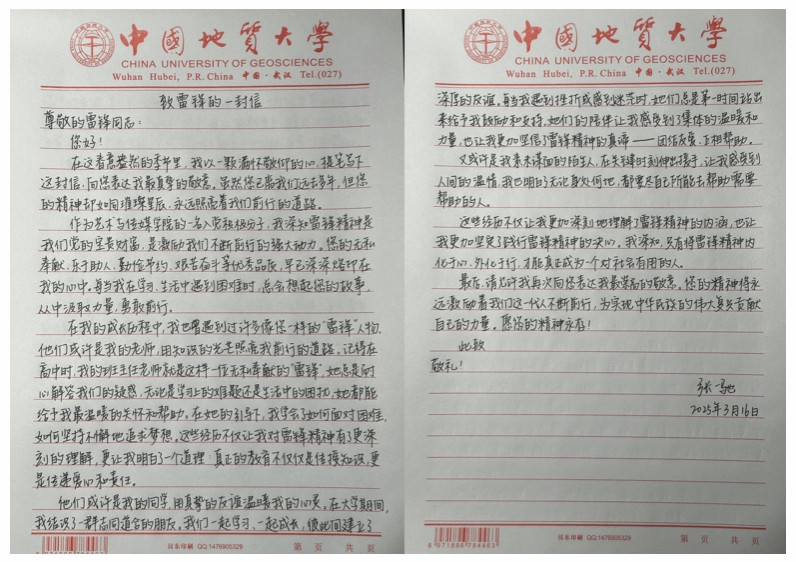 中國地質大學
CHINA UNIVERSITY OF GEOSCIENCES
Wuhan Hubei, P.R. China 中国·武汉 Tel.(027)
致雷锋的一封信
尊敬的雷锋同志：
您好！
在这春意盎然的季节里，我以一颗满怀敬仰的心，提笔写下
这封信，向您表达我最真挚的敬意。虽然您已离我们远去多年，但您
的精神却如同璀璨星辰，永远照亮着我们前行的道路。
作为艺术与传媒学院的一名入党积极分子，我深知雷锋精神是
我们党的宝贵财富，是激励我们不断前行的强大动力。您的无私
奉献、乐于助人、勤俭节约、艰苦奋斗等优秀品质，早已深深烙印在
我的心中。每当我在学习、生活中遇到困难时，总会想起您的故事，
从中汲取力量，勇敢前行。
在我的成长历程中，我也遇到过许多像您一样的“雷锋”人物。
他们或许是我的老师，用知识的光芒照亮我前行的道路。记得在
高中时，我的班主任老师就是这样一位无私奉献的“雷锋”，她总是耐
心解答我们的疑惑，无论是学习上的难题还是生活中的困扰，她都能
给予我最温暖的关怀和帮助。在她的引导下，我学会了如何面对困难，
如何坚持不懈地追求梦想。这些经历不仅让我对雷锋精神有了更深
刻的理解，更让我明白了一个道理：真正的教育不仅仅是传授知识，更
是传递爱心和责任。
他们或许是我的同学，用真挚的友谊温暖我的心灵。在大学期间，
我结识了一群志同道合的朋友。我们一起学习、一起成长，彼此间建立了
汉东印刷 QQ:1476905329 第 页 共 页
中國地質大學
CHINA UNIVERSITY OF GEOSCIENCES
Wuhan Hubei, P.R. China 中国·武汉 Tel.(027)
深厚的友谊。每当我遇到挫折或感到迷茫时，她们总是第一时间站出
来给予我鼓励和支持。她们的陪伴让我感受到了集体的温暖和
力量，也让我更加坚信了雷锋精神的真谛——团结友爱、互相帮助。
又或许是我素未谋面的陌生人，在关键时刻伸出援手，让我感受到
人间的温情。我也明白了无论身处何地，都要尽自己所能去帮助需要
帮助的人。
这些经历不仅让我更加深刻地理解了雷锋精神的内涵，也让
我更加坚定了践行雷锋精神的决心。我深知，只有将雷锋精神内
化于心、外化于行，才能真正成为一个对社会有用的人。
最后，请允许我再次向您表达我最崇高的敬意。您的精神将永
远激励着我们这一代人不断前行，为实现中华民族的伟大复兴贡献
自己的力量。愿您的精神永存！
此致
敬礼！
张驰
2025年3月16日
6 971886 784463
汉东印刷 QQ:1476905329 第 页 共 页